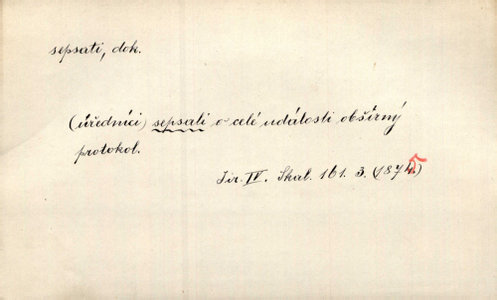 sepsati, dok.
(úředníci) sepsali o celé události obšírný
protokol.
Jir. IV. Skal. 161. 3. (1875)